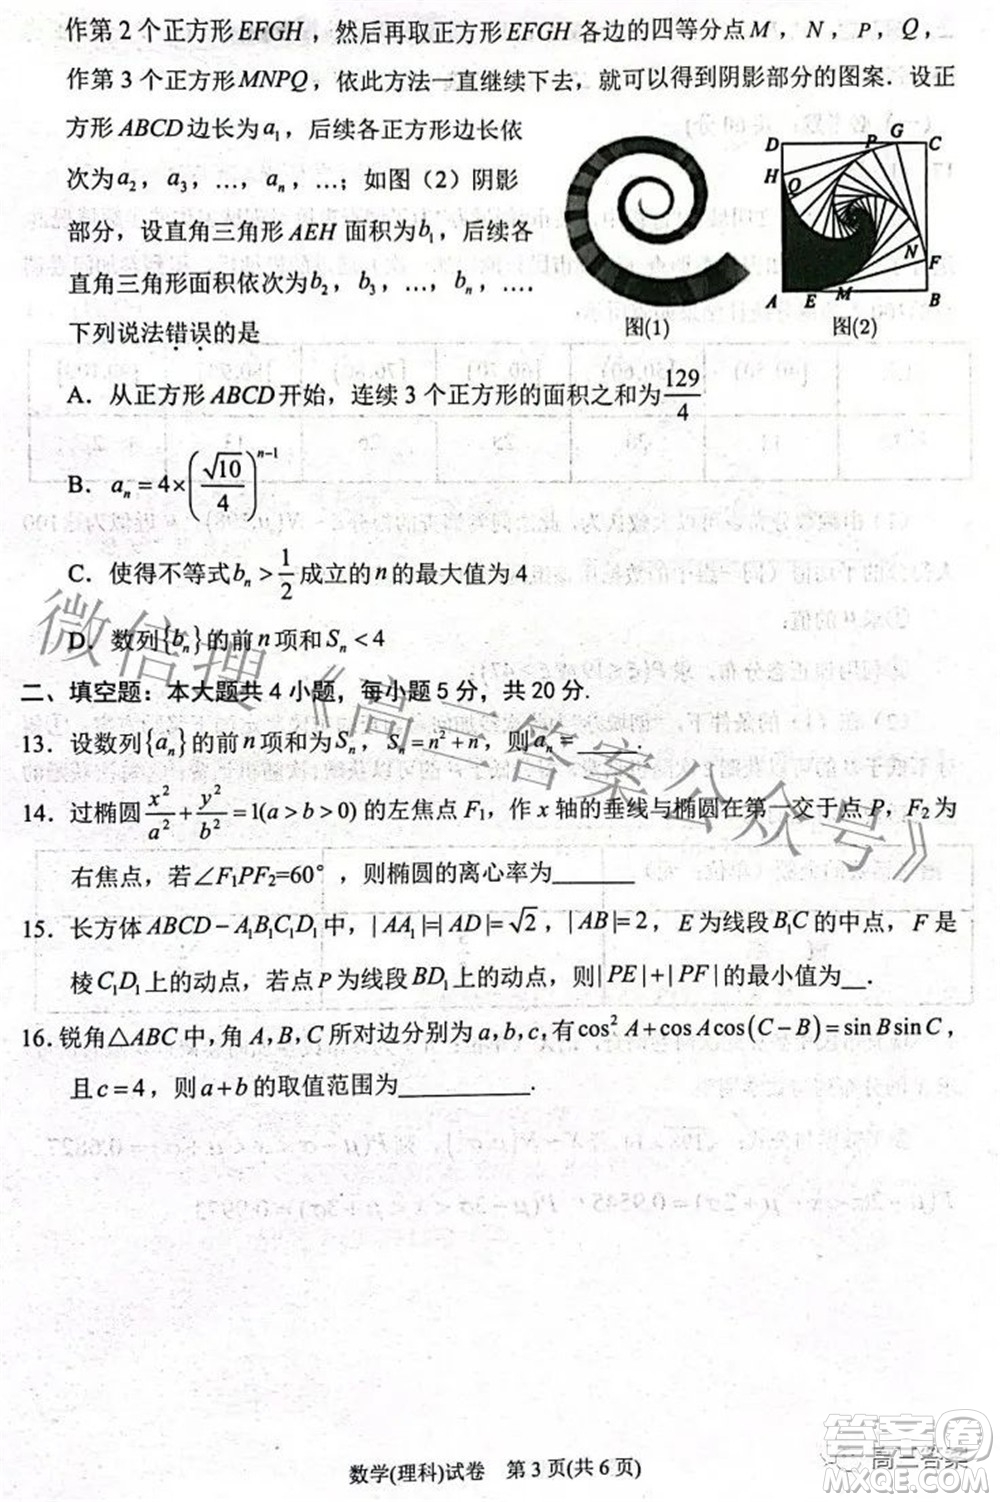 作第2个正方形EFGH，然后再取正方形EFGH各边的四等分点M，N，P，Q，
作第3个正方形MNPQ，依此方法一直继续下去，就可以得到阴影部分的图案．设正
方形ABCD边长为a₁，后续各正方形边长依
次为a₂，a₃，…，aₙ，…；如图（2）阴影
部分，设直角三角形AEH面积为b₁，后续各
直角三角形面积依次为b₂，b₃，…，bₙ，….
下列说法错误的是
D P G C
H Q
N F
A E M B
图(1) 图(2)
A．从正方形ABCD开始，连续3个正方形的面积之和为129/4
B．aₙ=4×(√10/4)ⁿ⁻¹
C．使得不等式bₙ>1/2成立的n的最大值为4
D．数列{bₙ}的前n项和Sₙ<4
二、填空题：本大题共4小题，每小题5分，共20分.
13．设数列{aₙ}的前n项和为Sₙ，Sₙ=n²+n，则aₙ=____
14．过椭圆x²/a²+y²/b²=1(a>b>0)的左焦点F₁，作x轴的垂线与椭圆在第一交于点P，F₂为
右焦点，若∠F₁PF₂=60°，则椭圆的离心率为______
15．长方体ABCD−A₁B₁C₁D₁中，|AA₁|=|AD|=√2，|AB|=2，E为线段B₁C的中点，F是
棱C₁D₁上的动点，若点P为线段BD₁上的动点，则|PE|+|PF|的最小值为__.
16.锐角△ABC中，角A,B,C所对边分别为a,b,c,有cos²A+cosAcos(C−B)=sinBsinC，
且c=4，则a+b的取值范围为_________.
数学(理科)试卷 第3页(共6页)
微信搜《高三答案公众号》
高三答案
答案圈
MXQE.COM